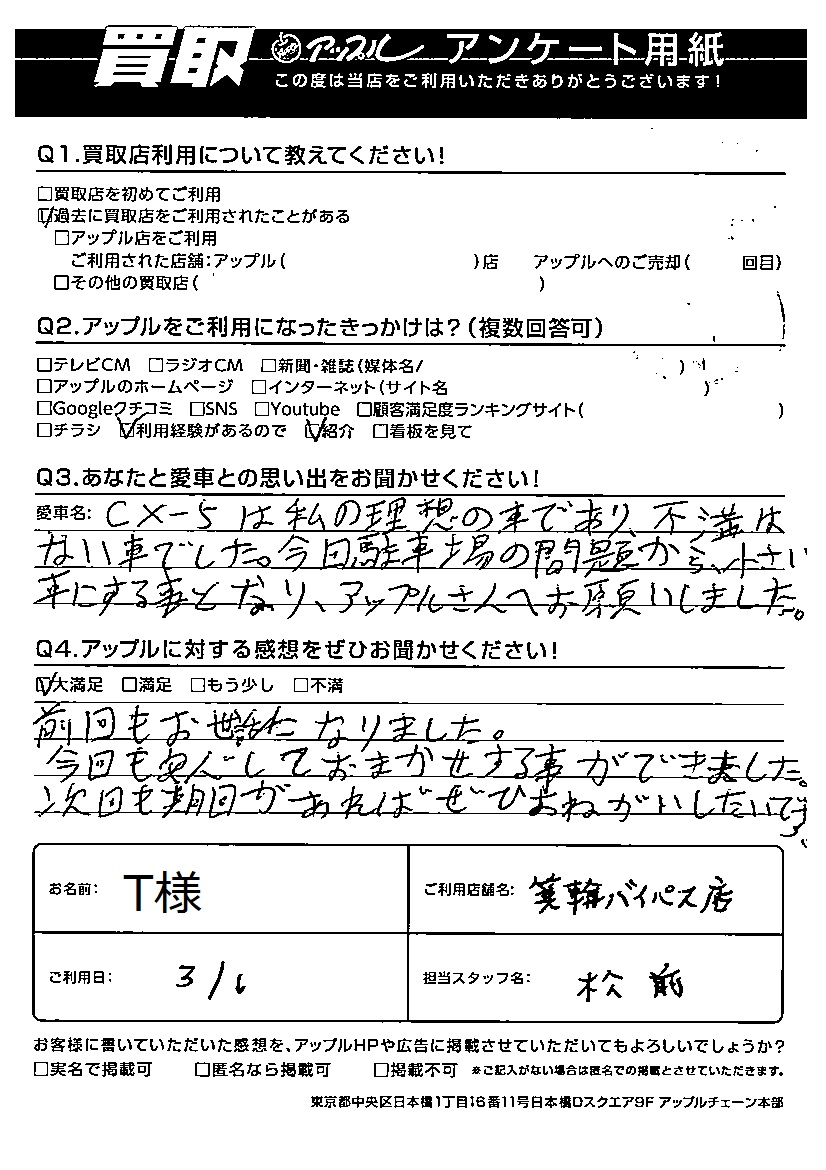 買取 アップル アンケート用紙
この度は当店をご利用いただきありがとうございます!
Q1.買取店利用について教えてください!
□買取店を初めてご利用
☑過去に買取店をご利用されたことがある
□アップル店をご利用
ご利用された店舗:アップル( )店 アップルへのご売却( 回目)
□その他の買取店( )
Q2.アップルをご利用になったきっかけは?(複数回答可)
□テレビCM □ラジオCM □新聞・雑誌(媒体名/ )
□アップルのホームページ □インターネット(サイト名 )
□Googleクチコミ □SNS □Youtube □顧客満足度ランキングサイト( )
□チラシ ☑利用経験があるので ☑紹介 □看板を見て
Q3.あなたと愛車との思い出をお聞かせください!
愛車名: CX-5 は私の理想の車であり、不満は
ない車でした。今回駐車場の問題から、小さい
車にする事となり、アップルさんへお願いしました。
Q4.アップルに対する感想をぜひお聞かせください!
☑大満足 □満足 □もう少し □不満
前回もお世話になりました。
今回も安心しておまかせする事ができました。
次回も期回があればぜひおねがいしたいです。
お名前: T様 ご利用店舗名: 箕輪バイパス店
ご利用日: 3/6 担当スタッフ名: 松前
お客様に書いていただいた感想を、アップルHPや広告に掲載させていただいてもよろしいでしょうか?
□実名で掲載可 □匿名なら掲載可 □掲載不可 ※ご記入がない場合は匿名での掲載とさせていただきます。
東京都中央区日本橋1丁目16番11号日本橋Dスクエア9F アップルチェーン本部